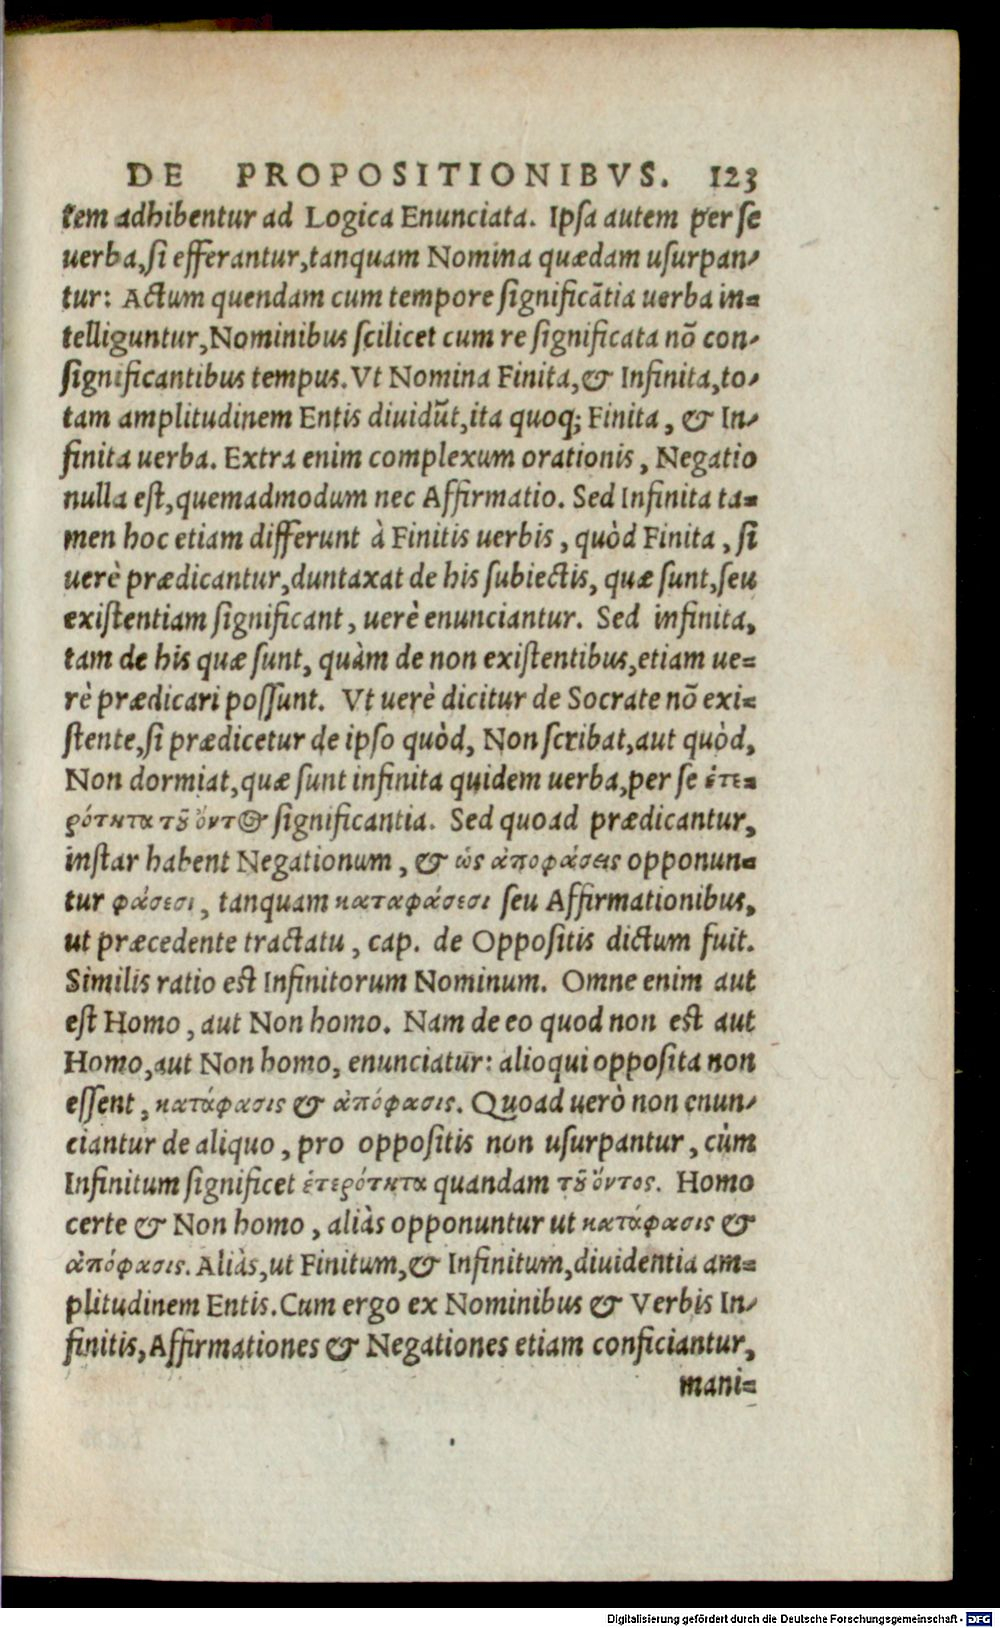 DE PROPOSITIONIBVS. 123
tem adhibentur ad Logica Enunciata. Ipsa autem per se
uerba, si efferantur, tanquam Nomina quædam usurpan-
tur: Actum quendam cum tempore significātia uerba in-
telliguntur, Nominibus scilicet cum re significata nō con-
significantibus tempus. Vt Nomina Finita, & Infinita, to-
tam amplitudinem Entis diuidūt, ita quoq; Finita, & In-
finita uerba. Extra enim complexum orationis, Negatio
nulla est, quemadmodum nec Affirmatio. Sed Infinita ta-
men hoc etiam differunt à Finitis uerbis, quòd Finita, si
uerè prædicantur, duntaxat de his subiectis, quæ sunt, seu
existentiam significant, uerè enunciantur. Sed infinita,
tam de his quæ sunt, quàm de non existentibus, etiam ue-
rè prædicari possunt. Vt uerè dicitur de Socrate nō exi-
stente, si prædicetur de ipso quòd, Non scribat, aut quòd,
Non dormiat, quæ sunt infinita quidem uerba, per se ἑτε-
ρότητα τȣ͂ ὄντος significantia. Sed quoad prædicantur,
instar habent Negationum, & ὡς ἀποφάσεις opponun-
tur φάσεσι, tanquam καταφάσεσι seu Affirmationibus,
ut præcedente tractatu, cap. de Oppositis dictum fuit.
Similis ratio est Infinitorum Nominum. Omne enim aut
est Homo, aut Non homo. Nam de eo quod non est aut
Homo, aut Non homo, enunciatur: alioqui opposita non
essent, κατάφασις & ἀπόφασις. Quoad uerò non enun-
ciantur de aliquo, pro oppositis non usurpantur, cùm
Infinitum significet ἑτερότητα quandam τȣ͂ ὄντος. Homo
certe & Non homo, aliàs opponuntur ut κατάφασις &
ἀπόφασις. Aliàs, ut Finitum, & Infinitum, diuidentia am-
plitudinem Entis. Cum ergo ex Nominibus & Verbis In-
finitis, Affirmationes & Negationes etiam conficiantur,
mani-
Digitalisierung gefördert durch die Deutsche Forschungsgemeinschaft - DFG